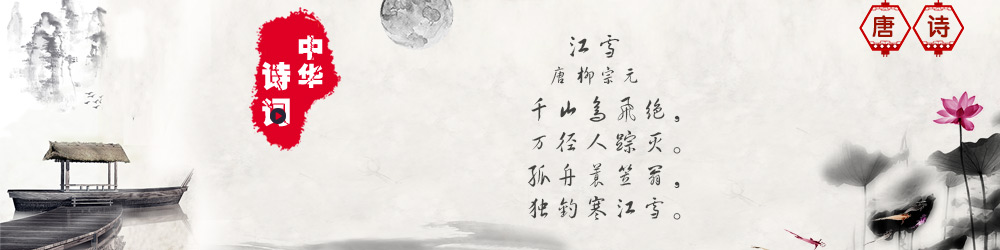 中华
诗词
江雪
唐柳宗元
千山鸟飞绝，
万径人踪灭。
孤舟蓑笠翁，
独钓寒江雪。
唐诗